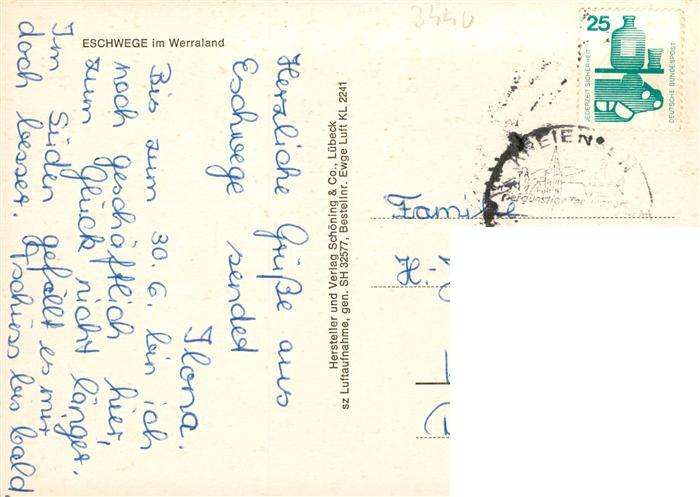 3440
ESCHWEGE im Werraland
Herzliche Grüße aus
Eschwege sendet
Ilona.
Bis zum 30.6. bin ich
noch geschäftlich hier,
zum Glück nicht länger.
Im Süden gefällt es mir
doch besser. Tschüss bis bald
Hersteller und Verlag Schöning & Co., Lübeck
sz Luftaufnahme, gen. SH 32577, Bestellnr. Ewge Luft KL 2241
25
JEDERZEIT SICHERHEIT
DEUTSCHE BUNDESPOST
Familie
H.